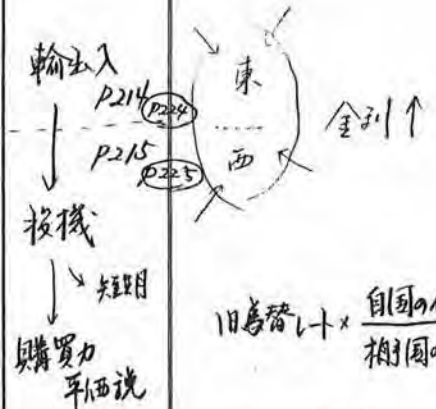 輸出入
P214 P224
P215 P225
投機
短期
購買力
平価説
東
西
金利↑
旧為替レート×
自国の
相手国の